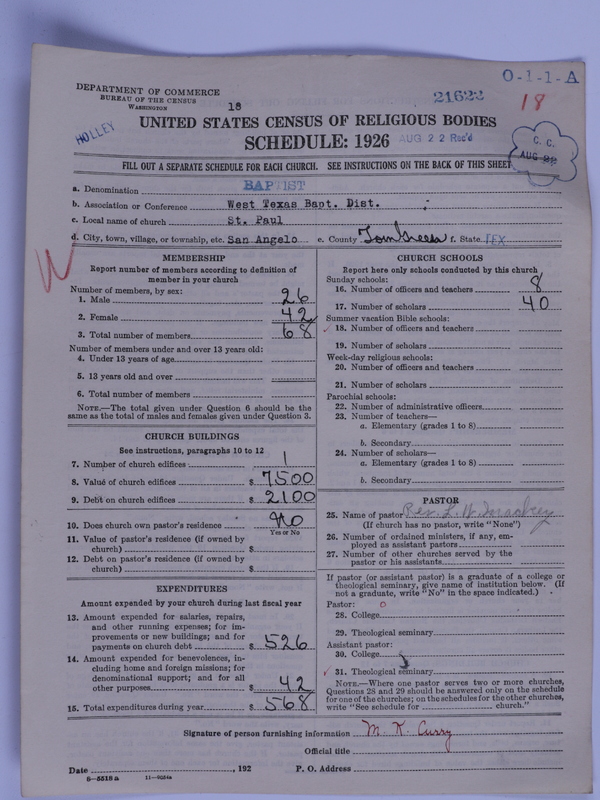 O-1-1-A
DEPARTMENT OF COMMERCE
BUREAU OF THE CENSUS
WASHINGTON
18
21622
18
HOLLEY
UNITED STATES CENSUS OF RELIGIOUS BODIES
SCHEDULE: 1926
AUG 22 Rec'd
C. C.
AUG 22
FILL OUT A SEPARATE SCHEDULE FOR EACH CHURCH. SEE INSTRUCTIONS ON THE BACK OF THIS SHEET
a. Denomination BAPTIST
b. Association or Conference West Texas Bapt. Dist.
c. Local name of church St. Paul
d. City, town, village, or township, etc. San Angelo e. County Tom Green f. State TEX
MEMBERSHIP
Report number of members according to definition of
member in your church
Number of members, by sex:
1. Male 26
2. Female 42
3. Total number of members 68
Number of members under and over 13 years old:
4. Under 13 years of age
5. 13 years old and over
6. Total number of members
NOTE.—The total given under Question 6 should be the
same as the total of males and females given under Question 3.
CHURCH BUILDINGS
See instructions, paragraphs 10 to 12
7. Number of church edifices 1
8. Value of church edifices $ 7500
9. Debt on church edifices $ 2100
10. Does church own pastor's residence No
Yes or No
11. Value of pastor's residence (if owned by
church) $
12. Debt on pastor's residence (if owned by
church) $
EXPENDITURES
Amount expended by your church during last fiscal year
13. Amount expended for salaries, repairs,
and other running expenses; for im-
provements or new buildings; and for
payments on church debt $ 526
14. Amount expended for benevolences, in-
cluding home and foreign missions; for
denominational support; and for all
other purposes $ 42
15. Total expenditures during year $ 568
CHURCH SCHOOLS
Report here only schools conducted by this church
Sunday schools:
16. Number of officers and teachers 8
17. Number of scholars 40
Summer vacation Bible schools:
18. Number of officers and teachers
19. Number of scholars
Week-day religious schools:
20. Number of officers and teachers
21. Number of scholars
Parochial schools:
22. Number of administrative officers
23. Number of teachers—
a. Elementary (grades 1 to 8)
b. Secondary
24. Number of scholars—
a. Elementary (grades 1 to 8)
b. Secondary
PASTOR
25. Name of pastor Rev. L. W.
(If church has no pastor, write "None")
26. Number of ordained ministers, if any, em-
ployed as assistant pastors
27. Number of other churches served by the
pastor or his assistants
If pastor (or assistant pastor) is a graduate of a college or
theological seminary, give name of institution below. (If
not a graduate, write "No" in the space indicated.)
Pastor: 0
28. College
29. Theological seminary
Assistant pastor:
30. College
31. Theological seminary
NOTE.—Where one pastor serves two or more churches,
Questions 28 and 29 should be answered only on the schedule
for one of the churches; on the schedules for the other churches,
write "See schedule for church."
Signature of person furnishing information M. K. Curry
Official title
Date , 192 P. O. Address
8—5518a 11—9024a